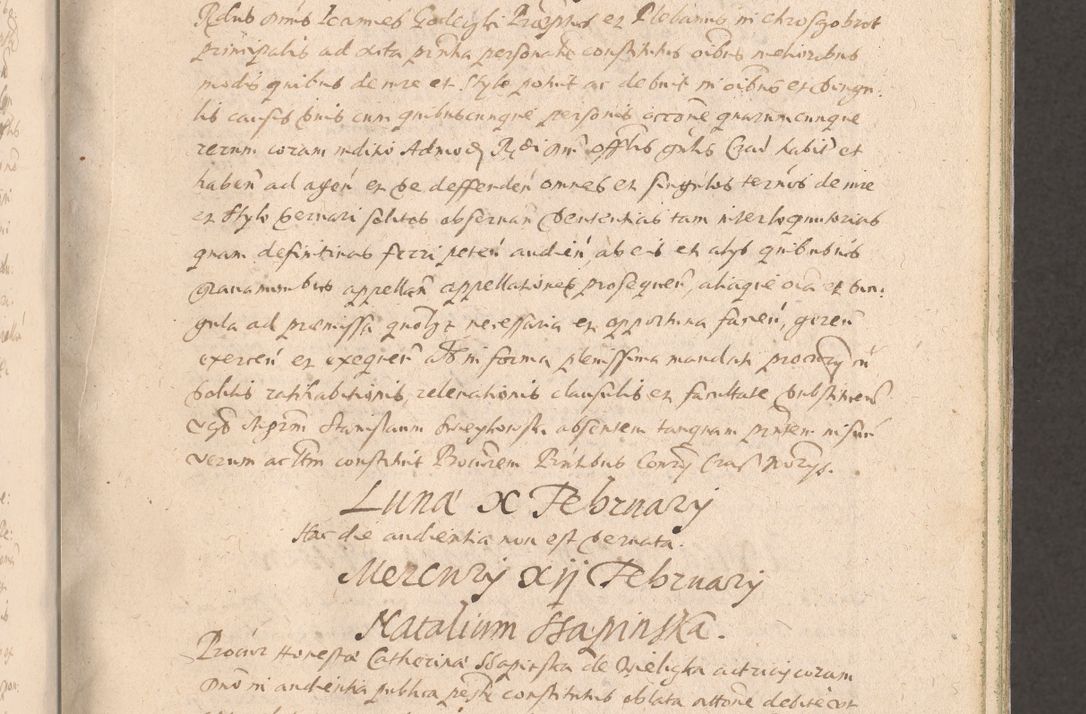 Rdus Dnus Ioannes Godeczki Praeptus et Plebanus in Chroszczobrot
principalis ad acta pntia personaliter constitutus oibus melioribus
modis quibus de iure et stylo potuit ac debuit in oibus et singu:
lis causis suis cum quibuscunque personis occone quarumcunque
rerum coram iudicio Admod Rdi Dni offlis gnlis Crac habit et
haben ad agen et se deffenden omnes et singulos terminos de iure
et stylo servari solitos observan sententias tam interloqutorias
quam definitivas ferri peten audien ab eis et alys quibusvis
gravaminibus appellan appellationes prosequen, aliaque oia et sin:
gula ad praemissa necessaria et opportuna facien, geren
exercen et exequen in forma plenissima mandati cum
solitis ratihabitionis, relevationis clausulis et facultate substituen
absentem tanquam pntem
verum ac constituit Procurem Pntibus
Lunae X February
Hac die audientia non est servata.
Mercury XII February
Natalium Ssapinska.
Procur Honestae Catherinae Ssapinska de Wieliczka actricis coram
Dno in audientia publica constitutus oblata debite